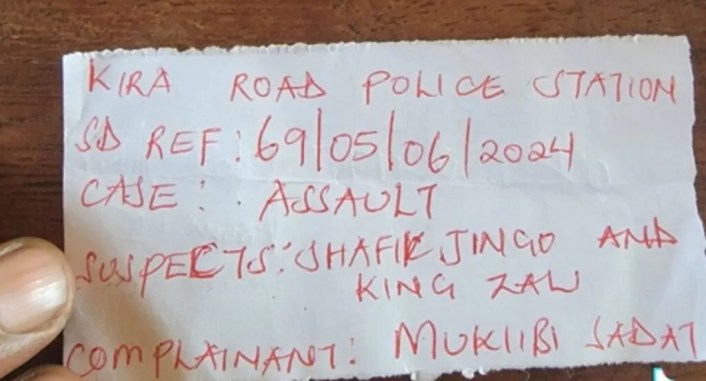 KIRA ROAD POLICE STATION
SD REF: 69/05/06/2024
CASE: . ASSAULT
SUSPECTS: SHAFIK JINGO AND
KING ZAW
COMPLAINANT: MUKIIBI SADAT